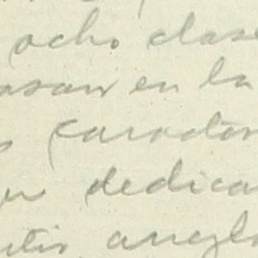 ocho clase
asan en la
caracter
dedica
anglo